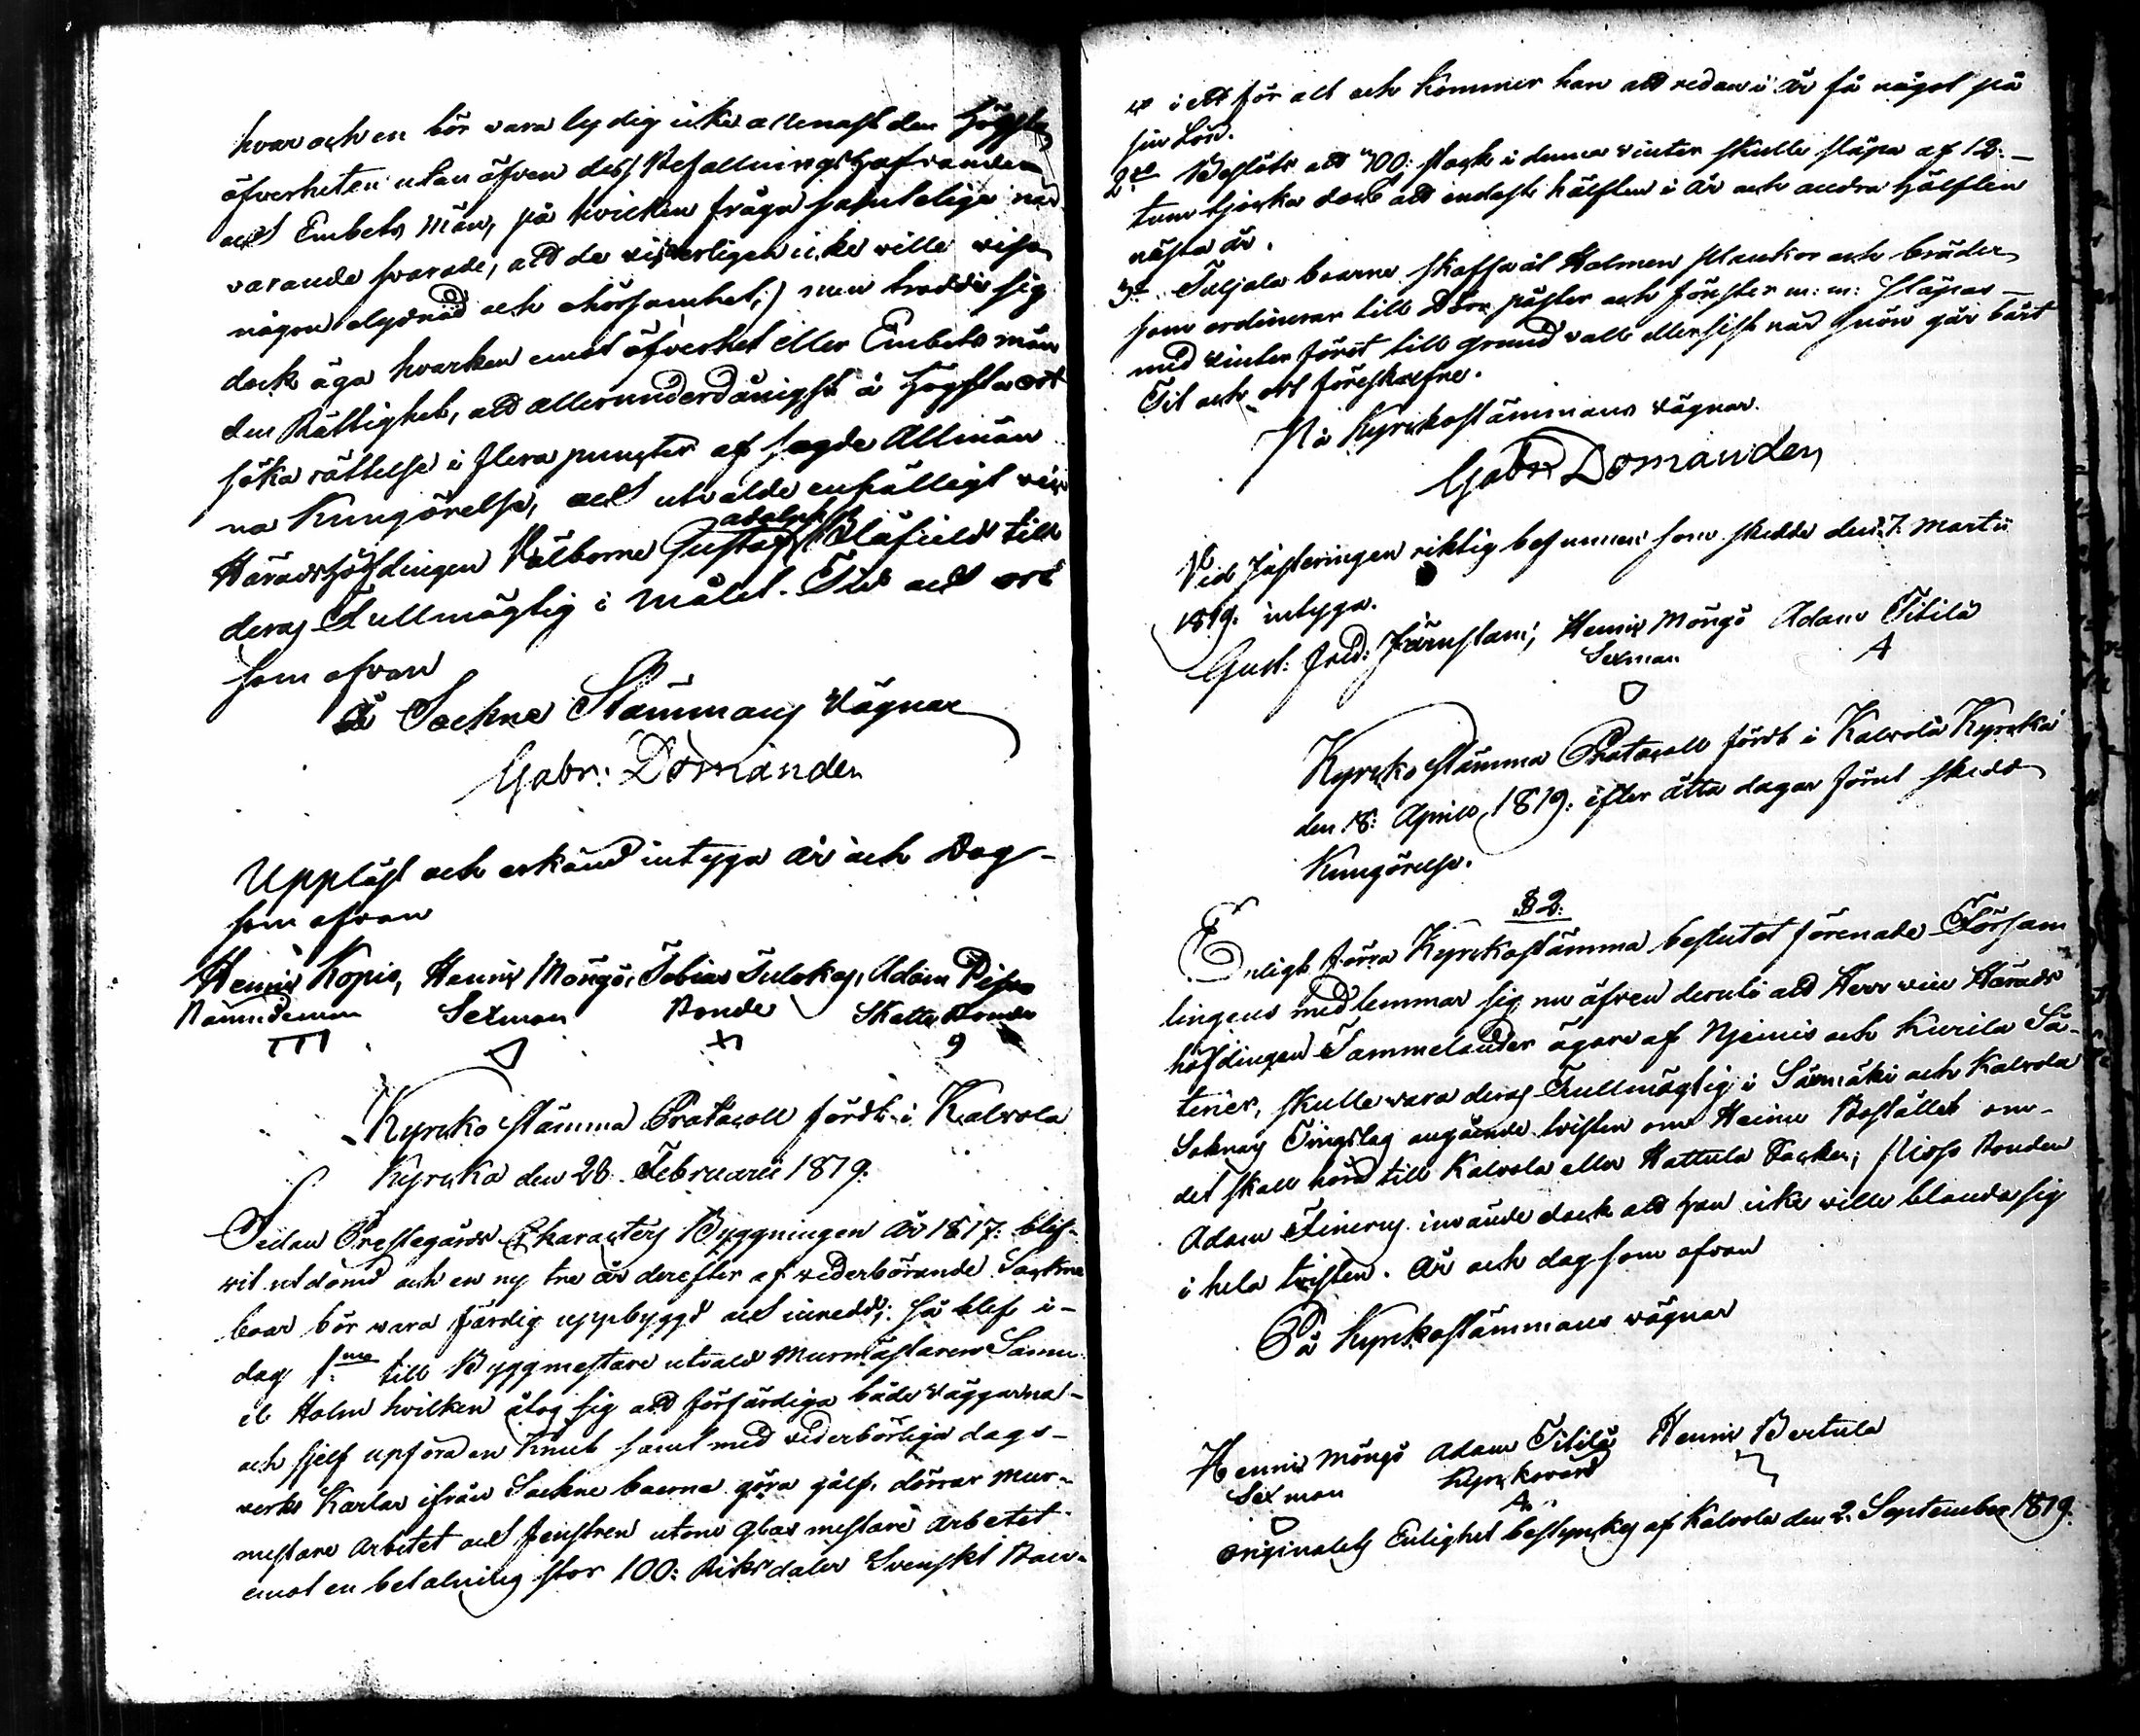 hvar och en bör vara lydig icke allenast den Högsta
öfverheten utan äfven dess Befallningshafvanden
och Embets Män, på hvicken fråga samtelige när
varande svarade, att de visserligen icke ville visa
någon olydnad och ohörsamhet, men trodde sig
dock äga hvarken emot öfverhet eller Embets män
den Rättighet, att allerunderdånigst å Högsta ort
söka rättelse i flera puncter af sagde Allmän
na Kungörelse, och utvalde enhälligt vice
Häradshöfdingen Välborne Gustaf Adolph till
deras Fullmägtig i målet. Tid och ort
som ofvan
På Sockne Stämmans vägnar
Gabr: Domander
Uppläst och erkänd intyga år och Dag
som ofvan
Henric Kopis, Henric Mongo, Tobias Adam
Nämndeman Sexman Bonde Skatte Bonde
Kyrcko stämma Protocoll fördt i Kalvola
Kyrcka den 28 Februarii 1819.
Sedan Prestegårds Characters Byggningen År 1817: blif-
vit utdömd och en ny tre år derefter af vederbörande Sockne
boar bör vara färdig uppbyggd och inredd; så blef i-
dag 1mo till Byggmestare utvald Murmästaren Samu-
el Holm hvilken åtog sig att förfärdiga både väggarna
och sjelf upföra en Knut samt med vederbörliga dags-
verks Karlar ifrån Sockne boerna göra golf, dörrar Mur-
mestare Arbetet och fenstren utom Glas mestare Arbetet
emot en betalning stor 100: Riksdaler Svenskt Banco
i ett för alt och kommer han att redan i år få något på
sin Lön.
2do Beslöts att 700: stock i denna vinter skulle släpa af 12:
tum tjocka dock att endast hälften i år och andra hälften
nästa år.
3o boerne skaffa åt Holmen plankor och bräder
som ordineras till Dörr påster och fönster m: m: släpas
med vinter föret till grund vall eller sist när snön går bårt
Tid och ort föreskrefne.
På Kyrckostämmans vägnar.
Gabr Domander
Vid justeringen riktig befunnen som skedde den 7. Martii
1819. intyga.
Gust: Fred: Henric Mongo Adam Titilä
Sexman A
Kyrcko stämma Protocoll fördt i Kalvola Kyrcka
den 18: Aprill 1819: efter åtta dagar förut skedd
Kungörelse.
§ 2:
Enligt förra Kyrckostämma beslutet förenade Församl
lingens medlemmar sig nu äfven deruti att Herr vice Härads
höfdingen Tammelander ägare af Niemis och Kurila Sä-
terier, skulle vara deras Fullmägtig i Säxmäki och Kalvola
Soknars Tingslag angående tvisten om Heinu Bostället om
det skall höra till Kalvola eller Hattula Socken; Bonden
Adam invände dock att han icke ville blanda sig
i hela tvisten. År och dag som ofvan
På Kyrckostämmans vägnar
Henric Mongo Adam Titilä Henric Bertula
Sexman Kyrckovärd
A
Originalets Enlighet bestyrckes af Kalvola den 2. September 1819.